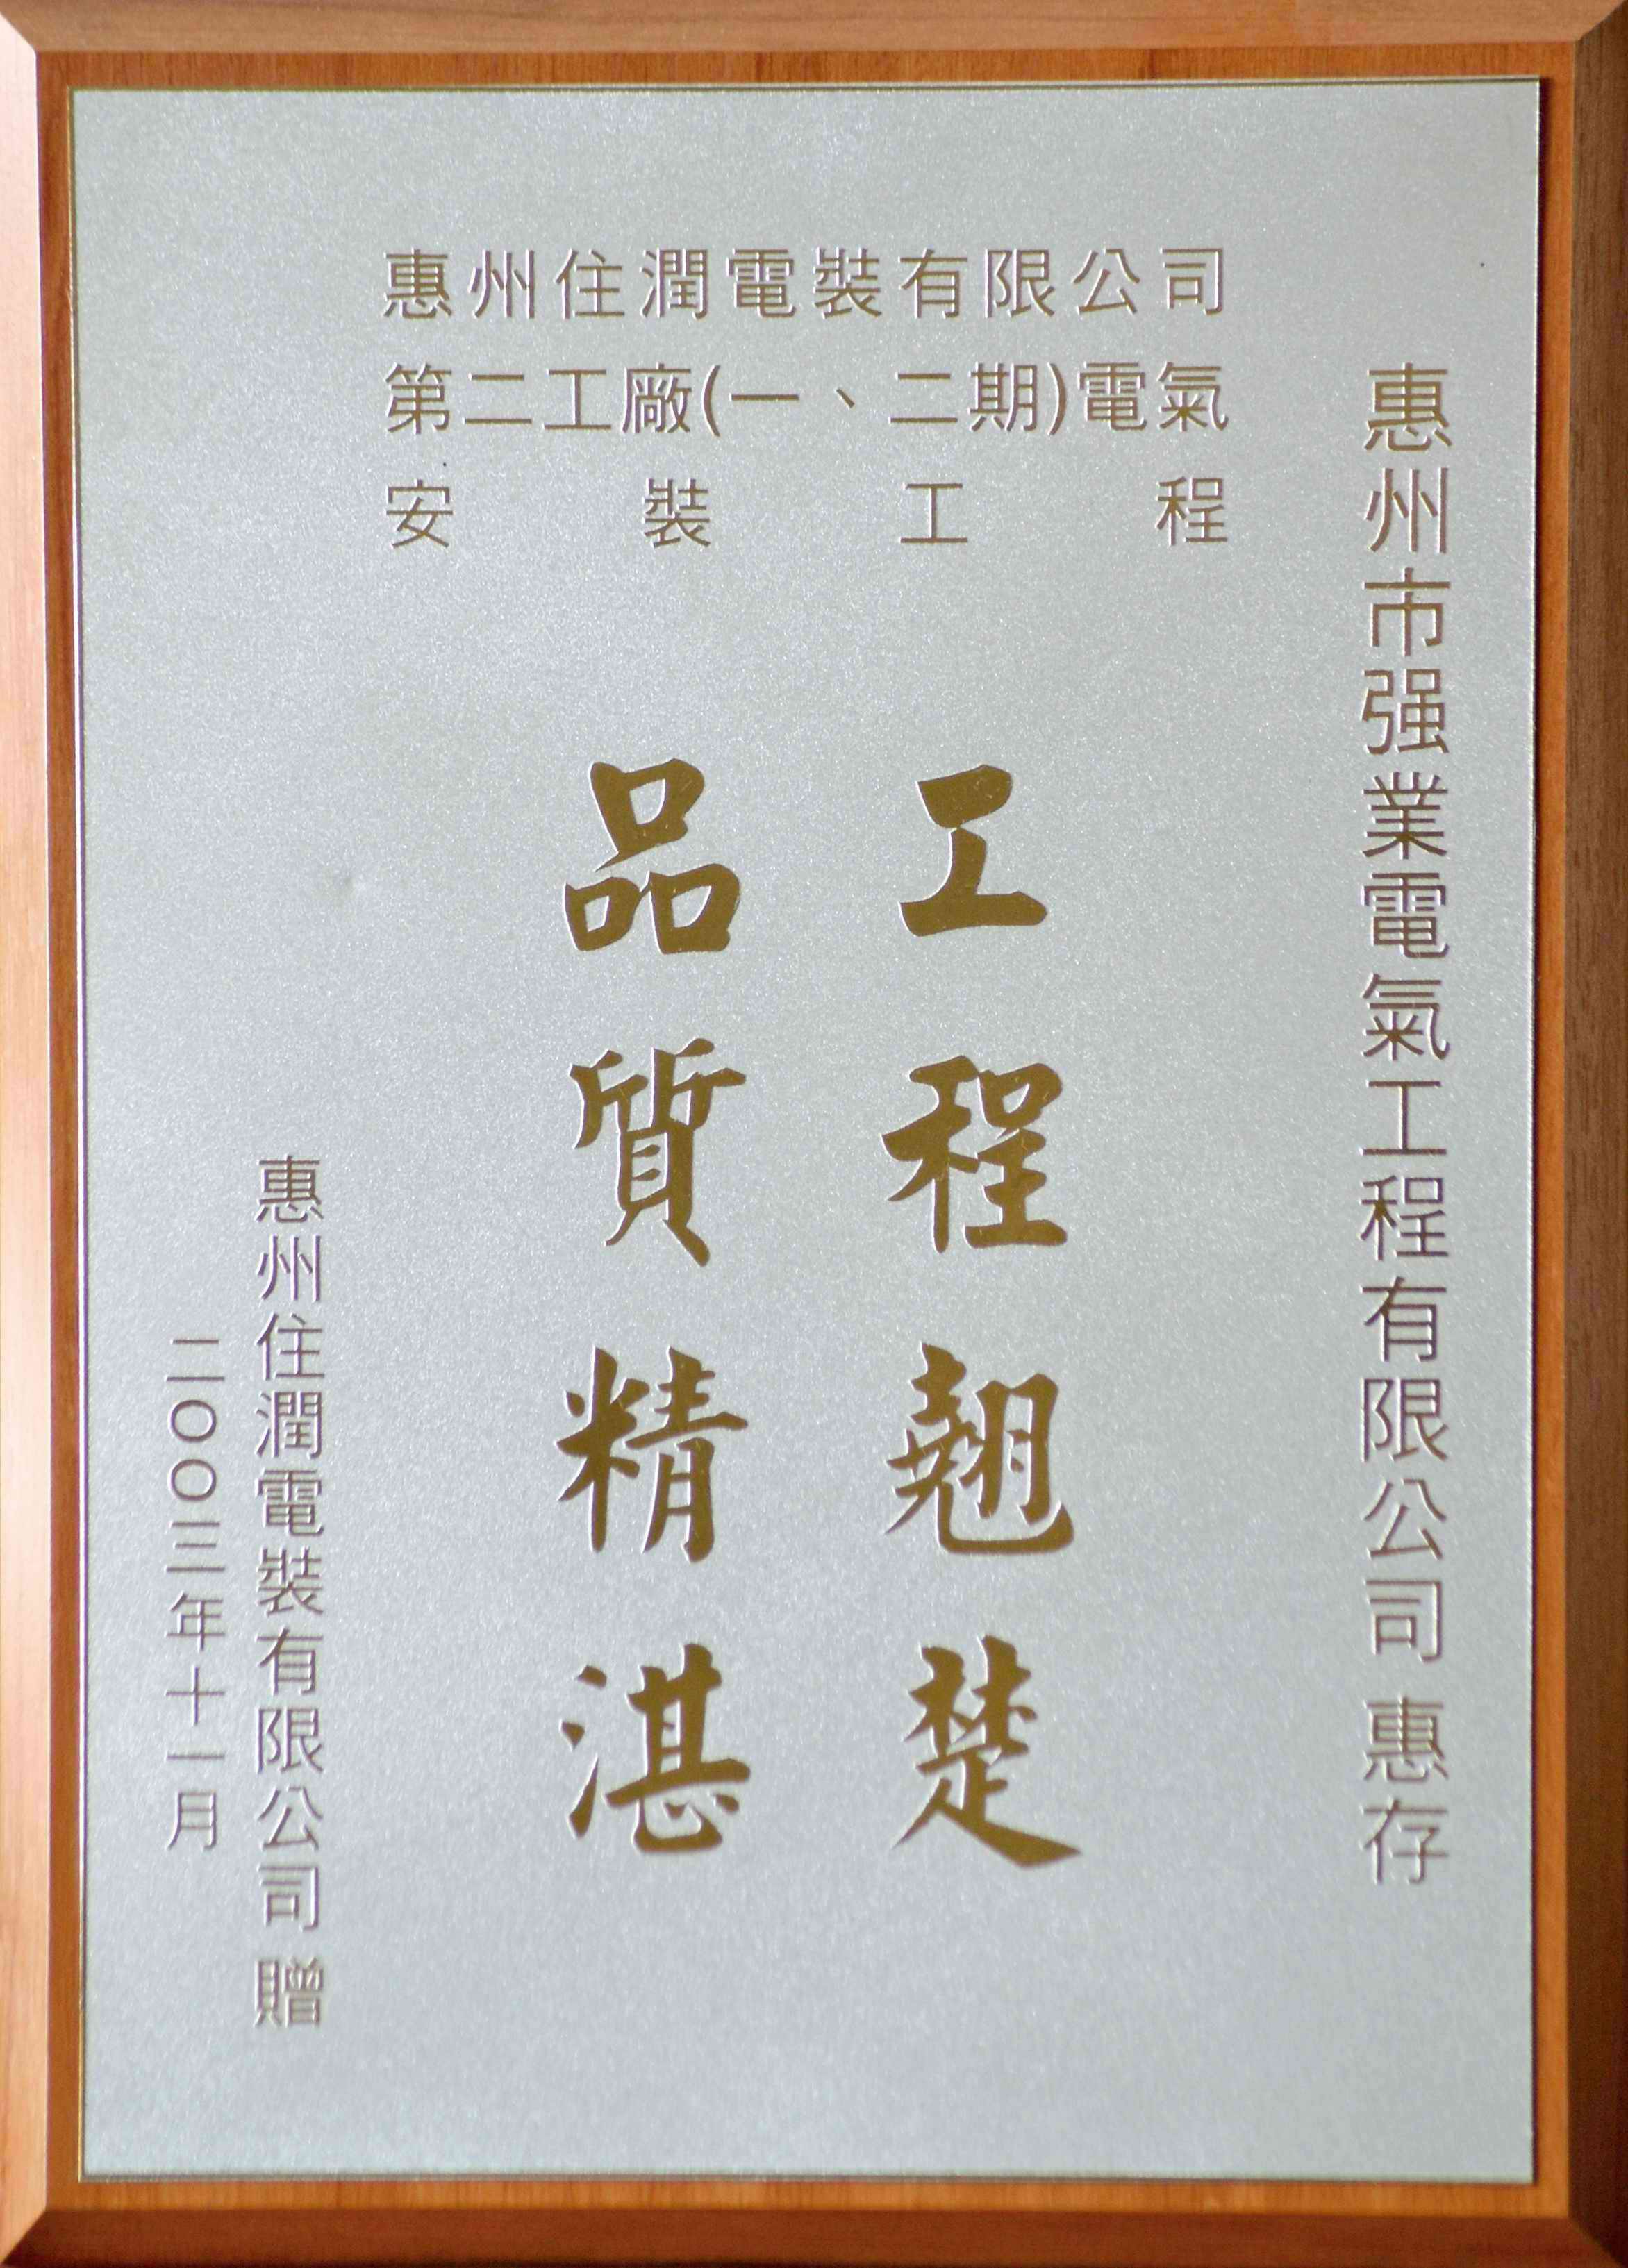 惠州住潤電裝有限公司
第二工廠(一、二期)電氣
安裝工程
惠州市强業電氣工程有限公司 惠存
工程翹楚
品質精湛
惠州住潤電裝有限公司 贈
二〇〇三年十一月